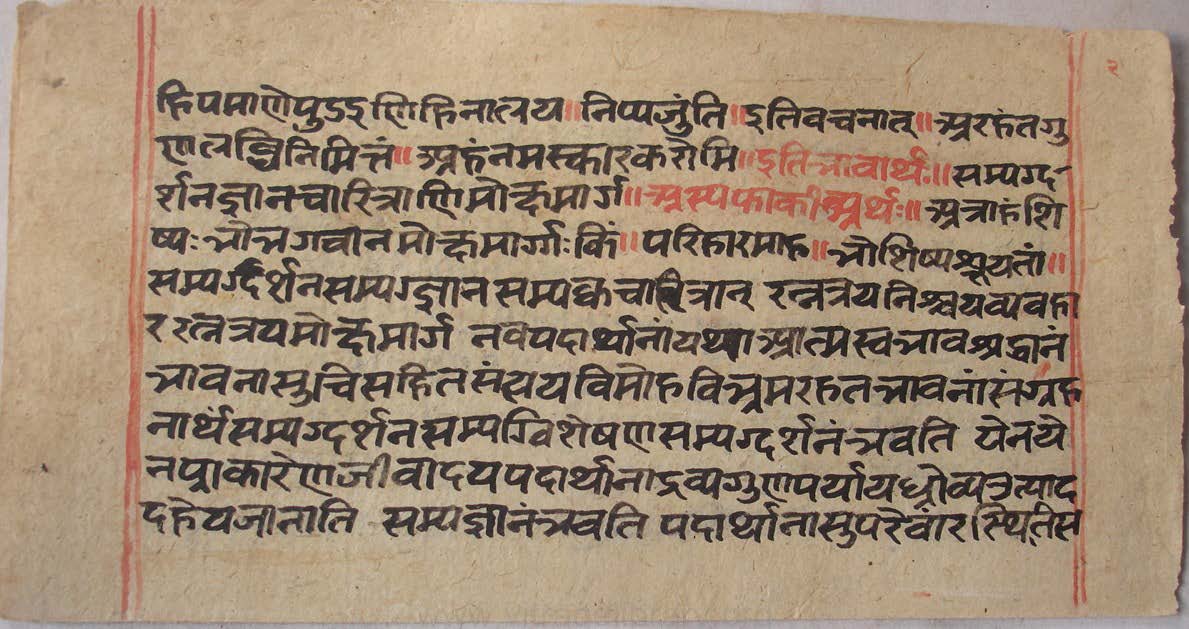 २
हिपमाणेपुऽऽणिहिनात्नय॥निप्पजुंति॥इतिवचनात्॥अरहंतगु
णलब्धिनिमित्तं॥अर्हंनमस्कारकरोमि॥इतिभावार्थः॥सम्यग्द
र्शनज्ञानचारित्राणिमोक्षमार्ग॥अस्पफाकीअर्थः॥अत्राहंशि
ष्यःभोभगवीनमोक्षमार्ग्गःकिं॥परिहारमाह॥भोशिष्यश्रूयतां॥
सम्पर्ग्दर्शनसम्पग्ज्ञानसम्पक्कचारित्रान् रत्नत्रयनिश्चयव्यवहा
ररत्नत्रयमोक्षमार्ग नवपदार्थानांयथाआत्मस्वभावश्रद्धानं
भावनासुचिसहितसंशयविमोहविभ्रमरहतभावनांसंग्रह
नार्थंसम्यग्दर्शनसम्पग्विशेषणसम्पग्दर्शनंभवति येनये
नप्राकारेणजीवादयपदार्थानाद्रव्यगुणपर्यायध्रौव्यउत्पाद
दहेयजानाति सम्पज्ञानंभवति पदार्थानासुपरेवांरस्थितिस